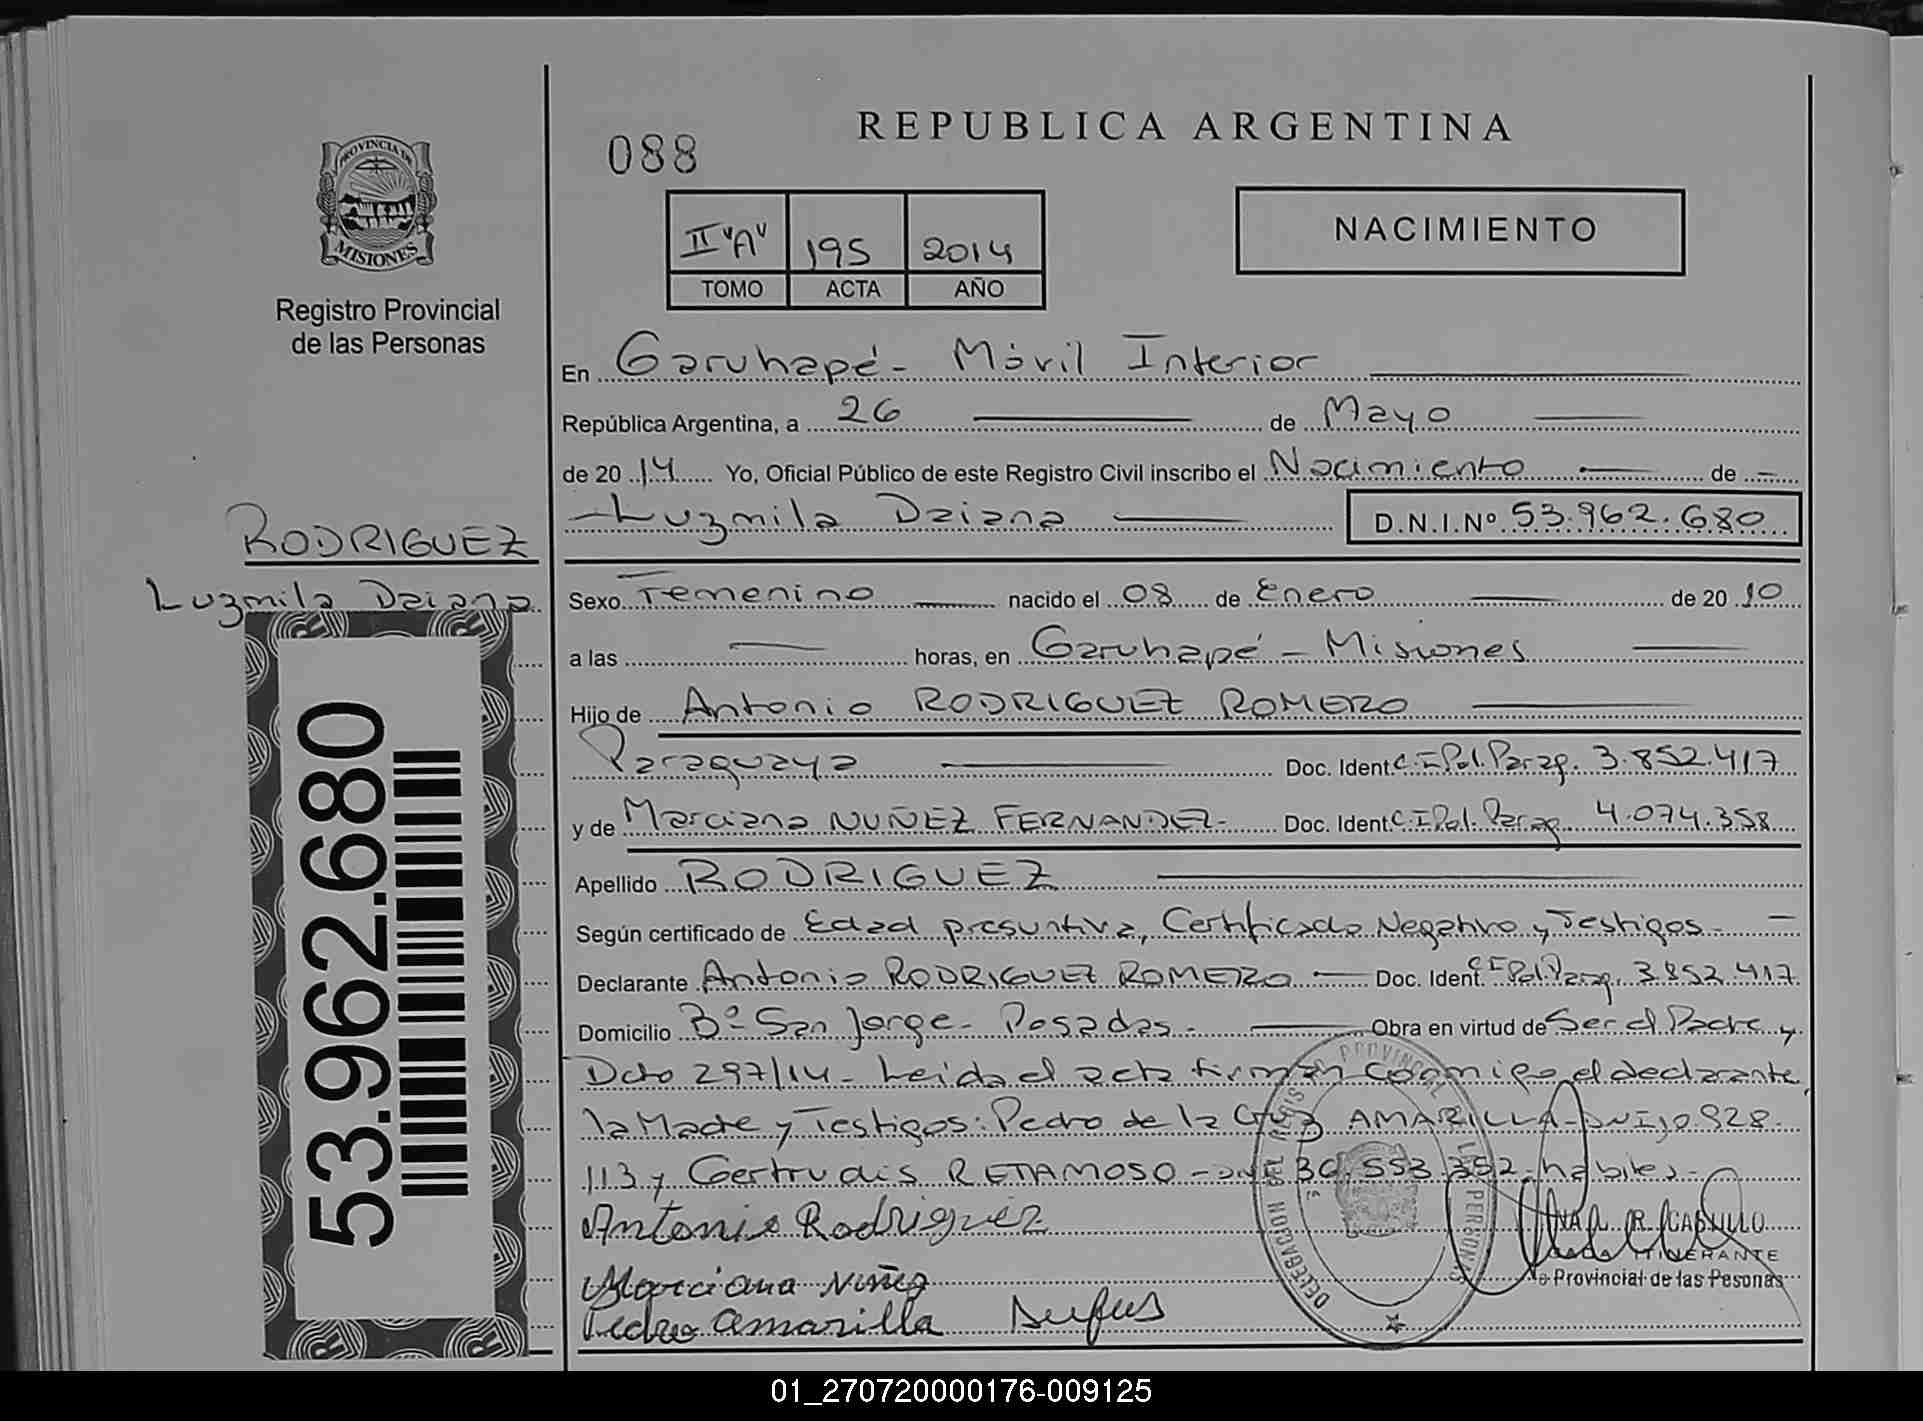 REPUBLICA ARGENTINA
088
NACIMIENTO
II "A" 195 2014
TOMO ACTA AÑO
PROVINCIA DE
MISIONES
Registro Provincial
de las Personas
En Garuhapé - Móvil Interior
República Argentina, a 26 de Mayo
de 2014 Yo, Oficial Público de este Registro Civil inscribo el Nacimiento de
Luzmila Daiana D.N.I.Nº 53.962.680
RODRIGUEZ
Luzmila Daiana
53.962.680
Sexo Femenino nacido el 08 de Enero de 2010
a las horas, en Garuhapé - Misiones
Hijo de Antonio RODRIGUEZ ROMERO
Paraguaya Doc. Ident. C.I.Pol.Parag. 3.852.417
y de Marciana NUÑEZ FERNANDEZ- Doc. Ident. C.I.Pol.Parag. 4.074.358
Apellido RODRIGUEZ
Según certificado de Edad presuntiva, Certificado Negativo y Testigos-
Declarante Antonio RODRIGUEZ ROMERO Doc. Ident. C.I.Pol.Parag. 3.852.417
Domicilio Bº San Jorge - Posadas - Obra en virtud de Ser el Padre y
Dcto 297/14 - Leida el acta firman conmigo el declarante,
la Madre y Testigos: Pedro de la Cruz AMARILLA
113 y Gertrudis RETAMOSO - 30.553.352 - habiles -
Antonio Rodriguez
Marciana Nuñez
Pedro Amarilla
DELEGACION DEL REGISTRO PROVINCIAL DE LAS PERSONAS
R. CASTILLO
ITINERANTE
Provincial de las Pesonas
01_270720000176-009125